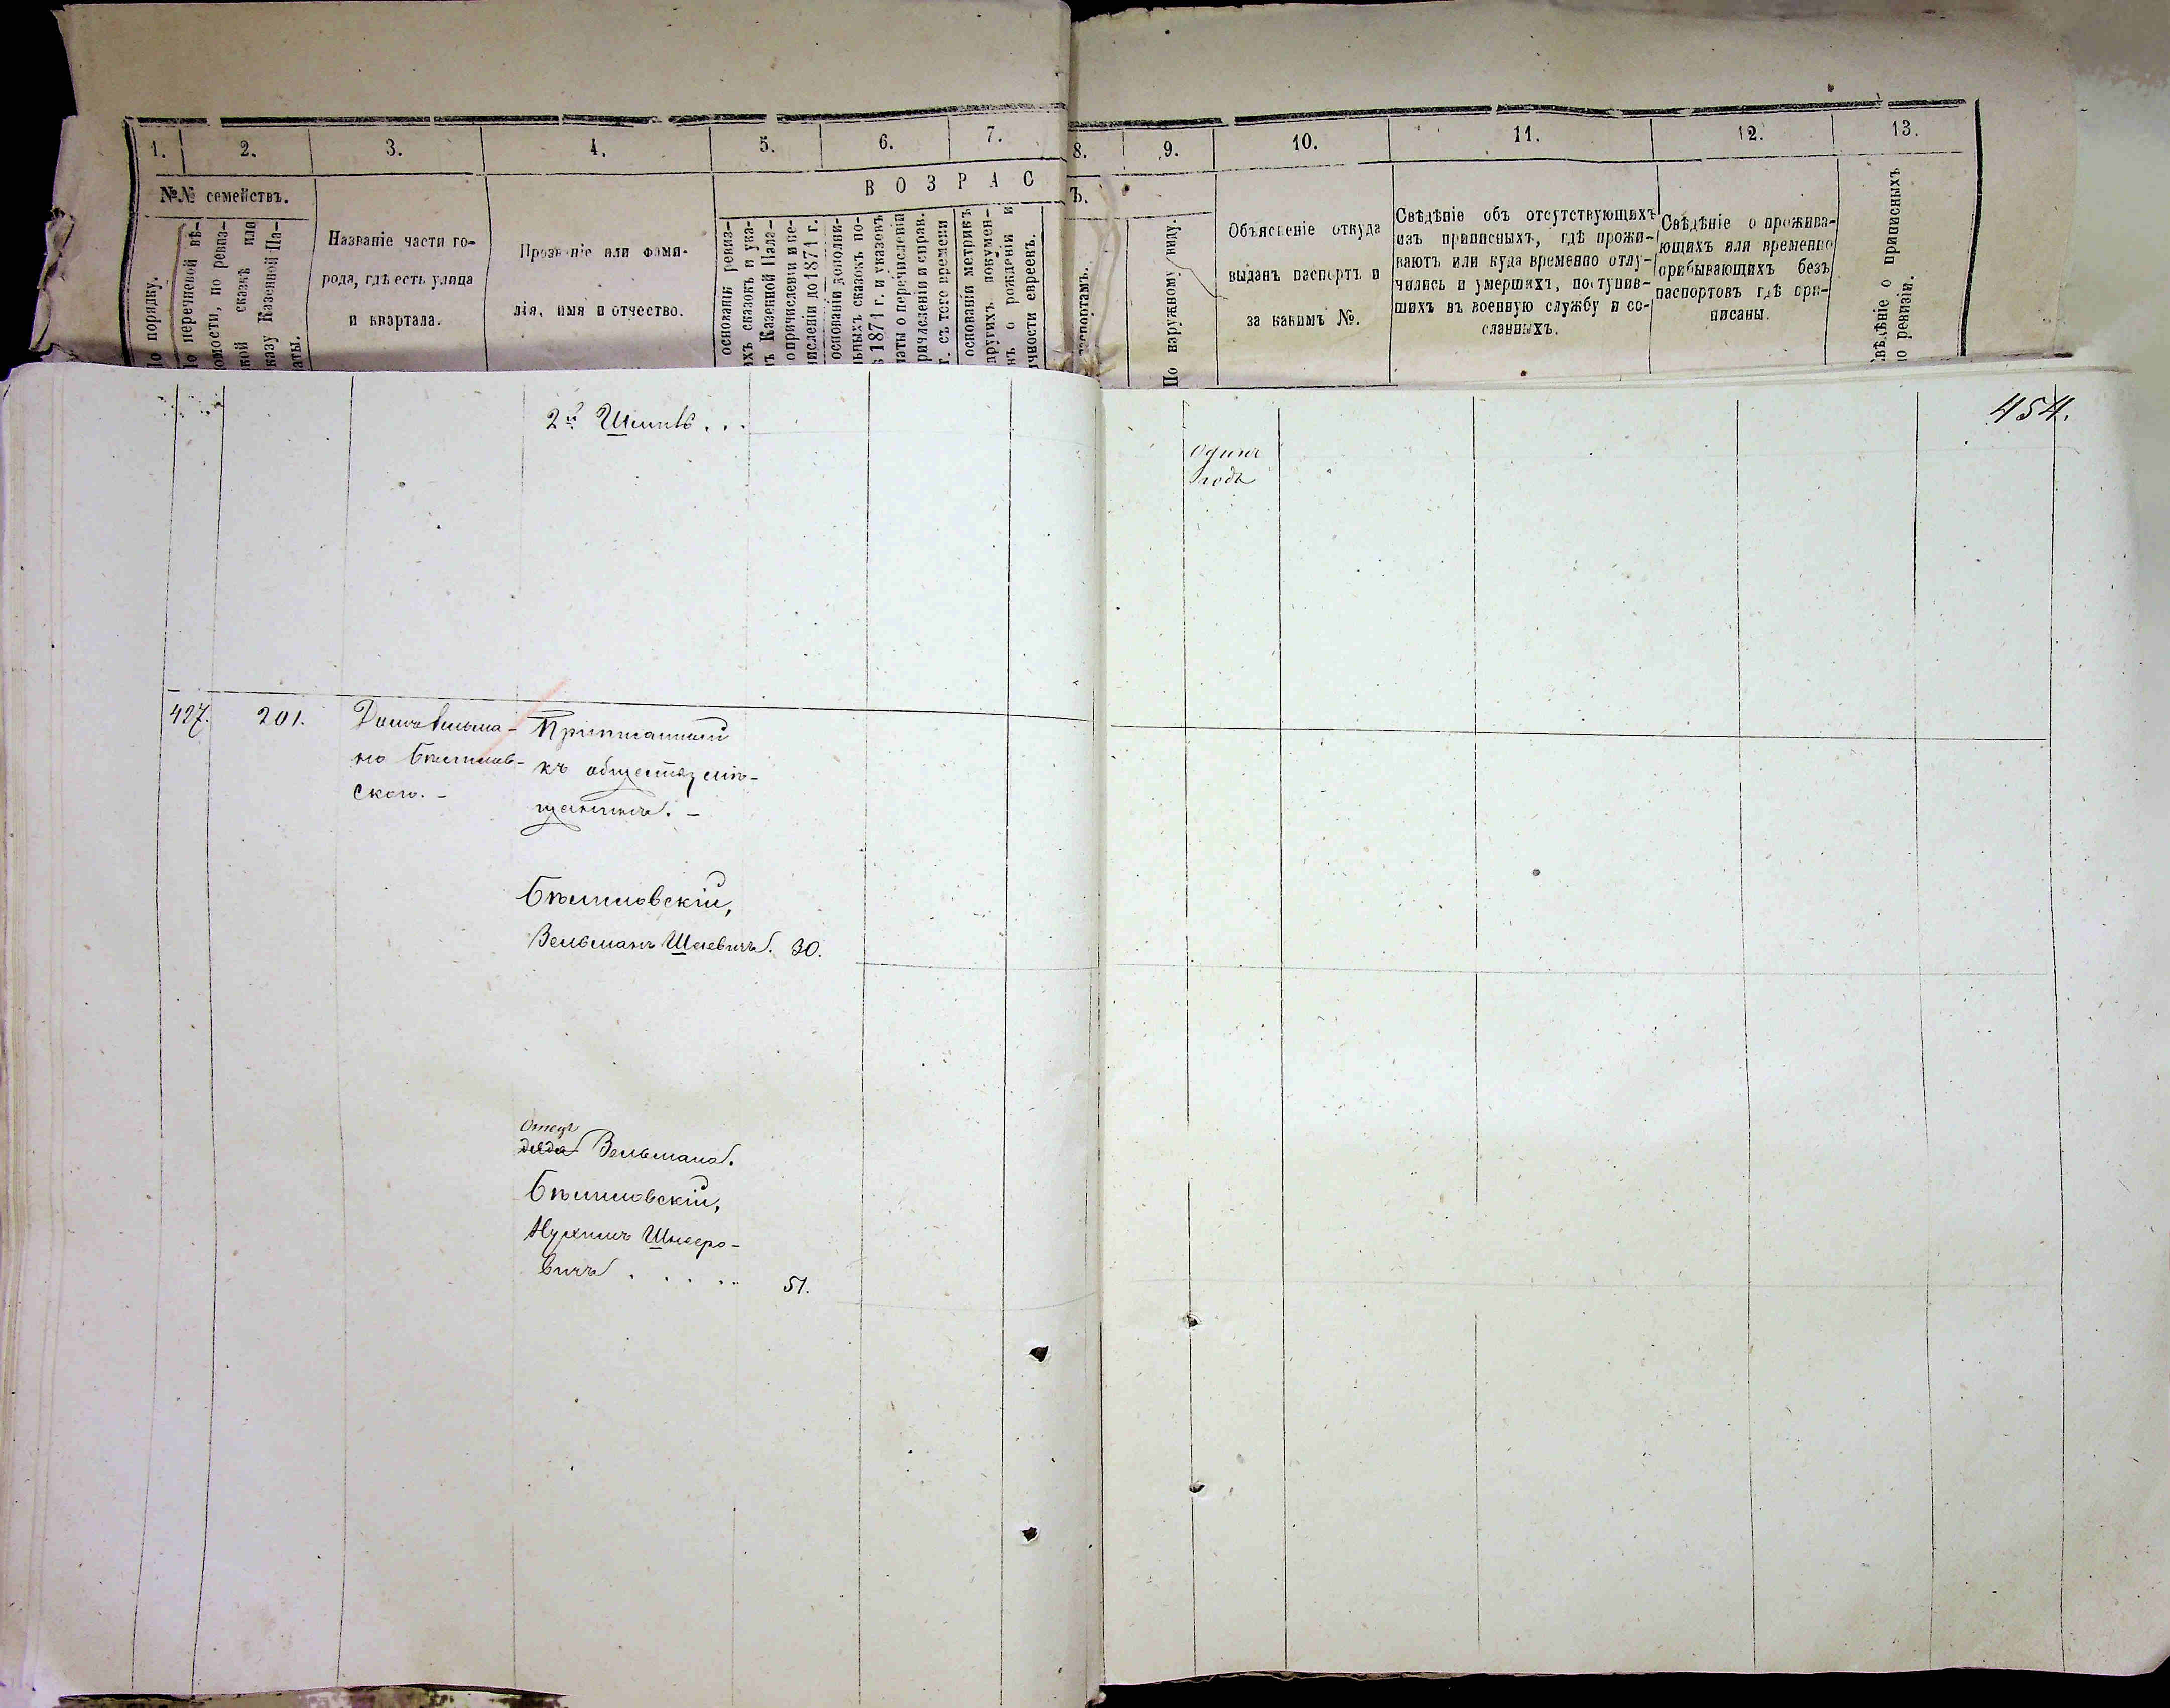 1.
2.
3.
4.
5.
6.
7.
8.
9.
10.
11.
12.
13.
№№ семействъ.
В О З Р А С
Ъ.
По порядку.
По перечневой вѣ-
домости, по ревиз-
ской сказкѣ или
указу Казенной Па-
латы.
Названіе части го-
рода, гдѣ есть улица
и квартала.
Прозваніе или фами-
лія, имя и отчество.
основаніи ревиз-
ихъ сказокъ и ука-
ъ Казенной Пала-
о причисленіи и пе-
численіи до 1871 г.
основаніи дополни-
льныхъ сказокъ по-
ѣ 1871 г. и указовъ
латы о перечисленіи
ричисленіи и справ.
г. съ того времени
основаніи метрикъ
другихъ докумен-
въ о рожденіи и
ичности евреевъ.
паспортамъ.
По наружному виду.
Объясненіе откуда
выданъ паспортъ и
за какимъ №.
Свѣдѣніе объ отсутствующихъ
изъ приписныхъ, гдѣ прожи-
ваютъ или куда временно отлу-
чились и умершихъ, поступив-
шихъ въ военную службу и со-
сланныхъ.
Свѣдѣніе о прожива-
ющихъ или временно
прибывающихъ безъ
паспортовъ гдѣ при-
писаны.
Свѣдѣніе о приписныхъ
по ревизіи.
454.
2й
Одинъ
годъ
427. 201.
Домъ Зельма-
на
скаго. –
Приписанный
къ обществу мѣ-
щанинъ. –
Зельманъ 30.
Отецъ
дядя Зельмана.
Нухимъ Шнееро-
вичъ . . . . 51.